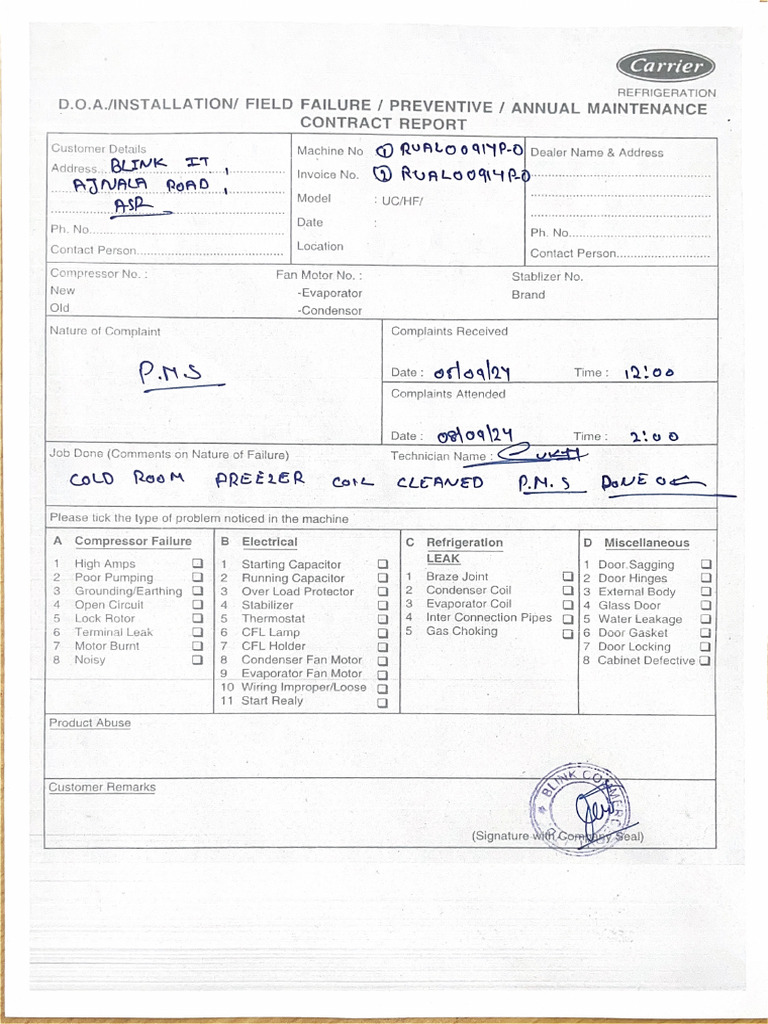 Carrier
REFRIGERATION
D.O.A./INSTALLATION/ FIELD FAILURE / PREVENTIVE / ANNUAL MAINTENANCE
CONTRACT REPORT
Customer Details
Address... BLINK IT,
AJNALA ROAD,
ASR
Ph. No.
Contact Person
Machine No ① RUAL00914P-0
Invoice No. ② RUAL00914P-0
Model : UC/HF/
Date :
Location
Dealer Name & Address
Ph. No.
Contact Person
Compressor No. : Fan Motor No. : Stablizer No.
New -Evaporator Brand
Old -Condensor
Nature of Complaint
P.M.S
Complaints Received
Date : 08/09/24 Time : 12:00
Complaints Attended
Date : 08/09/24 Time : 2:00
Job Done (Comments on Nature of Failure) Technician Name :
COLD ROOM FREEZER COIL CLEANED P.M.S DONE OK
Please tick the type of problem noticed in the machine
A Compressor Failure
1 High Amps ❏
2 Poor Pumping ❏
3 Grounding/Earthing ❏
4 Open Circuit ❏
5 Lock Rotor ❏
6 Terminal Leak ❏
7 Motor Burnt ❏
8 Noisy ❏
B Electrical
1 Starting Capacitor ❏
2 Running Capacitor ❏
3 Over Load Protector ❏
4 Stabilizer ❏
5 Thermostat ❏
6 CFL Lamp ❏
7 CFL Holder ❏
8 Condenser Fan Motor ❏
9 Evaporator Fan Motor ❏
10 Wiring Improper/Loose ❏
11 Start Realy ❏
C Refrigeration
LEAK
1 Braze Joint ❏
2 Condenser Coil ❏
3 Evaporator Coil ❏
4 Inter Connection Pipes ❏
5 Gas Choking ❏
D Miscellaneous
1 Door.Sagging ❏
2 Door Hinges ❏
3 External Body ❏
4 Glass Door ❏
5 Water Leakage ❏
6 Door Gasket ❏
7 Door Locking ❏
8 Cabinet Defective ❏
Product Abuse
Customer Remarks
BLINK COMMERC
(Signature with Company Seal)